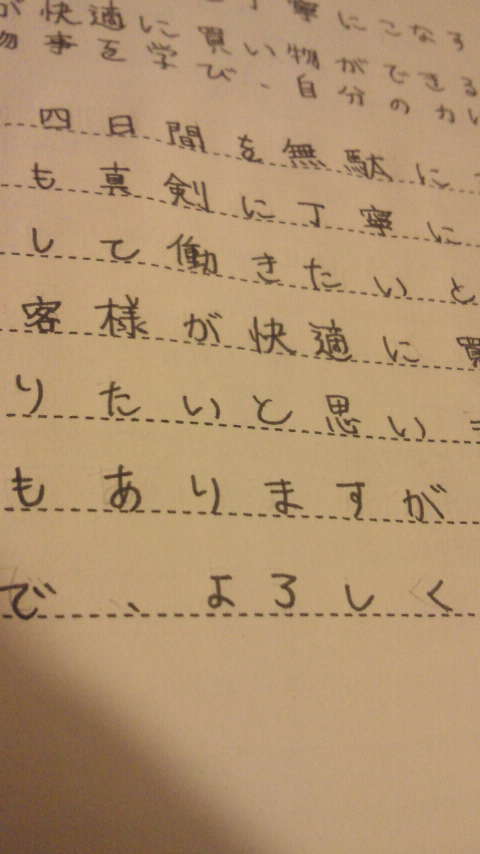 丁寧にこなろ
が快適に買い物ができる
物事を学び、自分の力い
四日間を無駄に
も真剣に丁寧に
して働きたいと
客様が快適に買
りたいと思いま
もありますが
で、よろしく